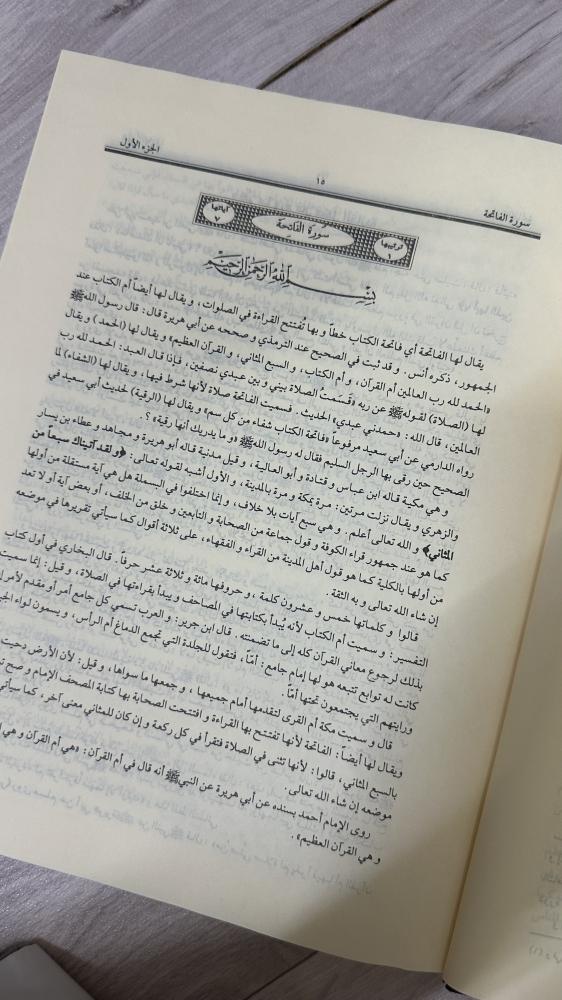 الجزء الأول
١٥
سورة الفاتحة
ترتيبها ١
سورة الفاتحة
آياتها ٧
بسم الله الرحمن الرحيم
يقال لها الفاتحة أي فاتحة الكتاب خطاً و بها تُفتتح القراءة في الصلوات، و يقال لها أيضاً أم الكتاب عند
الجمهور، ذكره أنس. و قد ثبت في الصحيح عند الترمذي و صححه عن أبي هريرة قال: قال رسول الله ﷺ
«الحمد لله رب العالمين أم القرآن، و أم الكتاب، و السبع المثاني، و القرآن العظيم» و يقال لها (الحمد) و يقال
لها (الصلاة) لقوله ﷺ عن ربه «قَسَمتُ الصلاة بيني و بين عبدي نصفين، فإذا قال العبد: الحمد لله رب
العالمين، قال الله: «حمدني عبدي» الحديث. فسميت الفاتحة صلاة لأنها شرط فيها، و يقال لها (الشفاء) لما
رواه الدارمي عن أبي سعيد مرفوعاً «فاتحة الكتاب شفاء من كل سم» و يقال لها (الرقية) لحديث أبي سعيد في
الصحيح حين رقى بها الرجل السليم فقال له رسول الله ﷺ «و ما يدريك أنها رقية» ؟.
و هي مكية قاله ابن عباس و قتادة و أبو العالية، و قيل مدنية قاله أبو هريرة و مجاهد و عطاء بن يسار
والزهري و يقال نزلت مرتين: مرة بمكة و مرة بالمدينة، و الأول أشبه لقوله تعالى: ﴿ولقد آتيناك سبعاً من
المثاني﴾ و الله تعالى أعلم. و هي سبع آيات بلا خلاف، و إنما اختلفوا في البسملة هل هي آية مستقلة من أولها
كما هو عند جمهور قراء الكوفة و قول جماعة من الصحابة و التابعين و خلق من الخلف، أو بعض آية أو لا تعد
من أولها بالكلية كما هو قول أهل المدينة من القراء و الفقهاء، على ثلاثة أقوال كما سيأتي تقريرها في موضعه
إن شاء الله تعالى و به الثقة.
قالوا و كلماتها خمس و عشرون كلمة، و حروفها مائة و ثلاثة عشر حرفاً. قال البخاري في أول كتاب
التفسير: و سميت أم الكتاب لأنه يُبدأ بكتابتها في المصاحف و يبدأ بقراءتها في الصلاة، و قيل: إنما سميت
بذلك لرجوع معاني القرآن كله إلى ما تضمنته. قال ابن جرير: و العرب تسمي كل جامع أمر أو مقدم لأمر
كانت له توابع تتبعه هو لها إمام جامع: أمّاً، فتقول للجلدة التي تجمع الدماغ أم الرأس، و يسمون لواء
ورايتهم التي يجتمعون تحتها أمّاً.
قال و سميت مكة أم القرى لتقدمها أمام جميعها، و جمعها ما سواها، و قيل: لأن الأرض دحيت
ويقال لها أيضاً: الفاتحة لأنها تفتتح بها القراءة و افتتحت الصحابة بها كتابة المصحف الإمام و صح
بالسبع المثاني، قالوا: لأنها تثنى في الصلاة فتقرأ في كل ركعة و إن كان للمثاني معنى آخر، كما سيأتي
موضعه إن شاء الله تعالى.
روى الإمام أحمد بسنده عن أبي هريرة عن النبي ﷺ أنه قال في أم القرآن: «هي أم القرآن و هي
و هي القرآن العظيم».